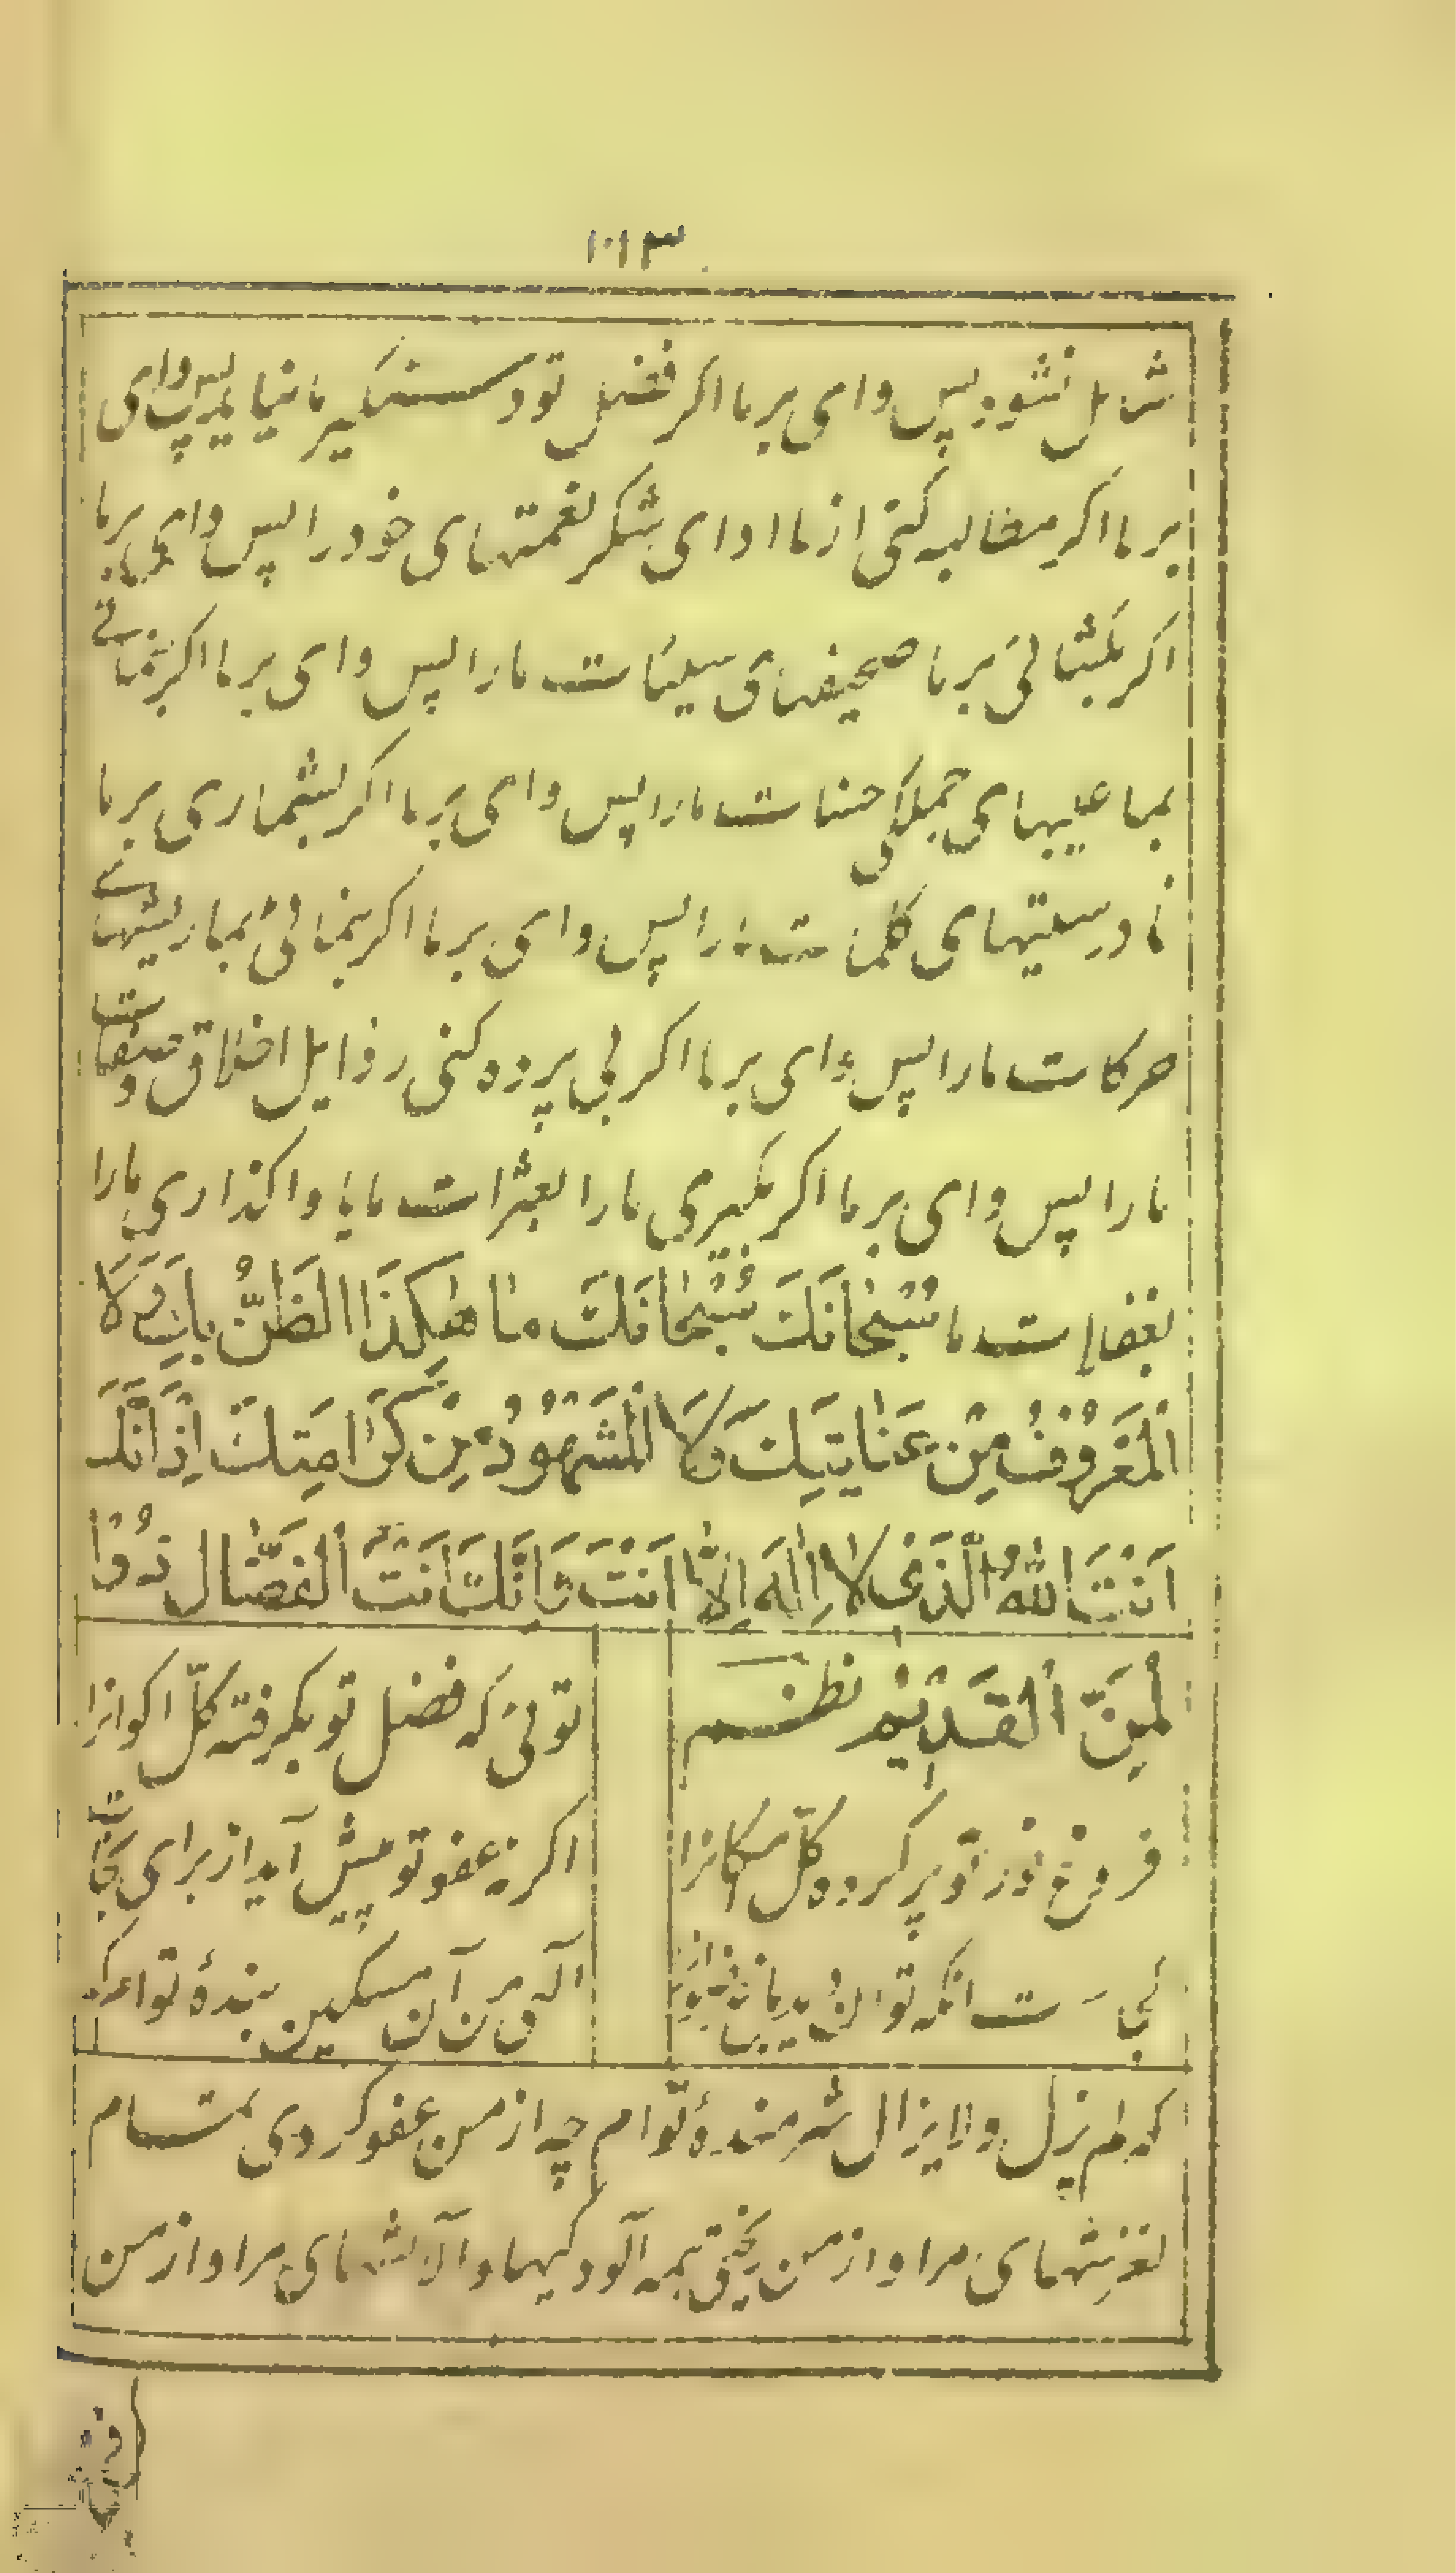 ۱۰۱۳
شامل نشود پس وای بر ما اکر فضل تو دستکیر ما نیاید پس وای
بر ما اکر مطالبه کنی از ما ادای شکر نعمتهای خود را پس وای بر ما
اکر بکشائی بر ما صحیفهای سیئات ما را پس وای بر ما اکر بنمائے
بما عیبهای جملکی حسنات ما را پس وای بر ما اکر بشماری بر ما
نادرستیهای کلمات ما را پس وای بر ما اکر بنمائی بما زشتیهائے
حرکات ما را پس وای بر ما اکر بی پرده کنی رذایل اخلاق و صفات
ما را پس وای بر ما اکر بکیری ما را بعثرات ما یا واکذاری ما را
بغفلات ما سُبْحٰانَكَ سُبْحٰانَكَ مٰا هٰكَذَا الظَّنُّ بِكَ وَلَا
الْمَعْرُوْفُ مِنْ عِنٰايَتِكَ وَلَا الْمَشْهُوْدُ مِنْ كَرٰامَتِكَ اِذْ اَنَّكَ
اَنْتَ اللّٰهُ الَّذِىْ لٰا اِلٰهَ اِلّٰا اَنْتَ وَاَنَّكَ اَنْتَ الفَضّٰال ذُوْا
لْمَنِّ الْقَدِيْمِ نظــم
توئی که فضل تو بکرفته کلّ اکوانرا
فروغ نور تو پر کرده کلّ امکانرا
اکر نه عفو تو پیش آید از برای نجات
بی است انکه تواند
الٓهی من آن مسکین بندهٔ توام که
که لم یزل و لایزال شرمندهٔ توام چه از من عفو کردی تمــام
لغزشهای مرا و از من ریختی همه آلودکیها و آلایشهای مرا و از من